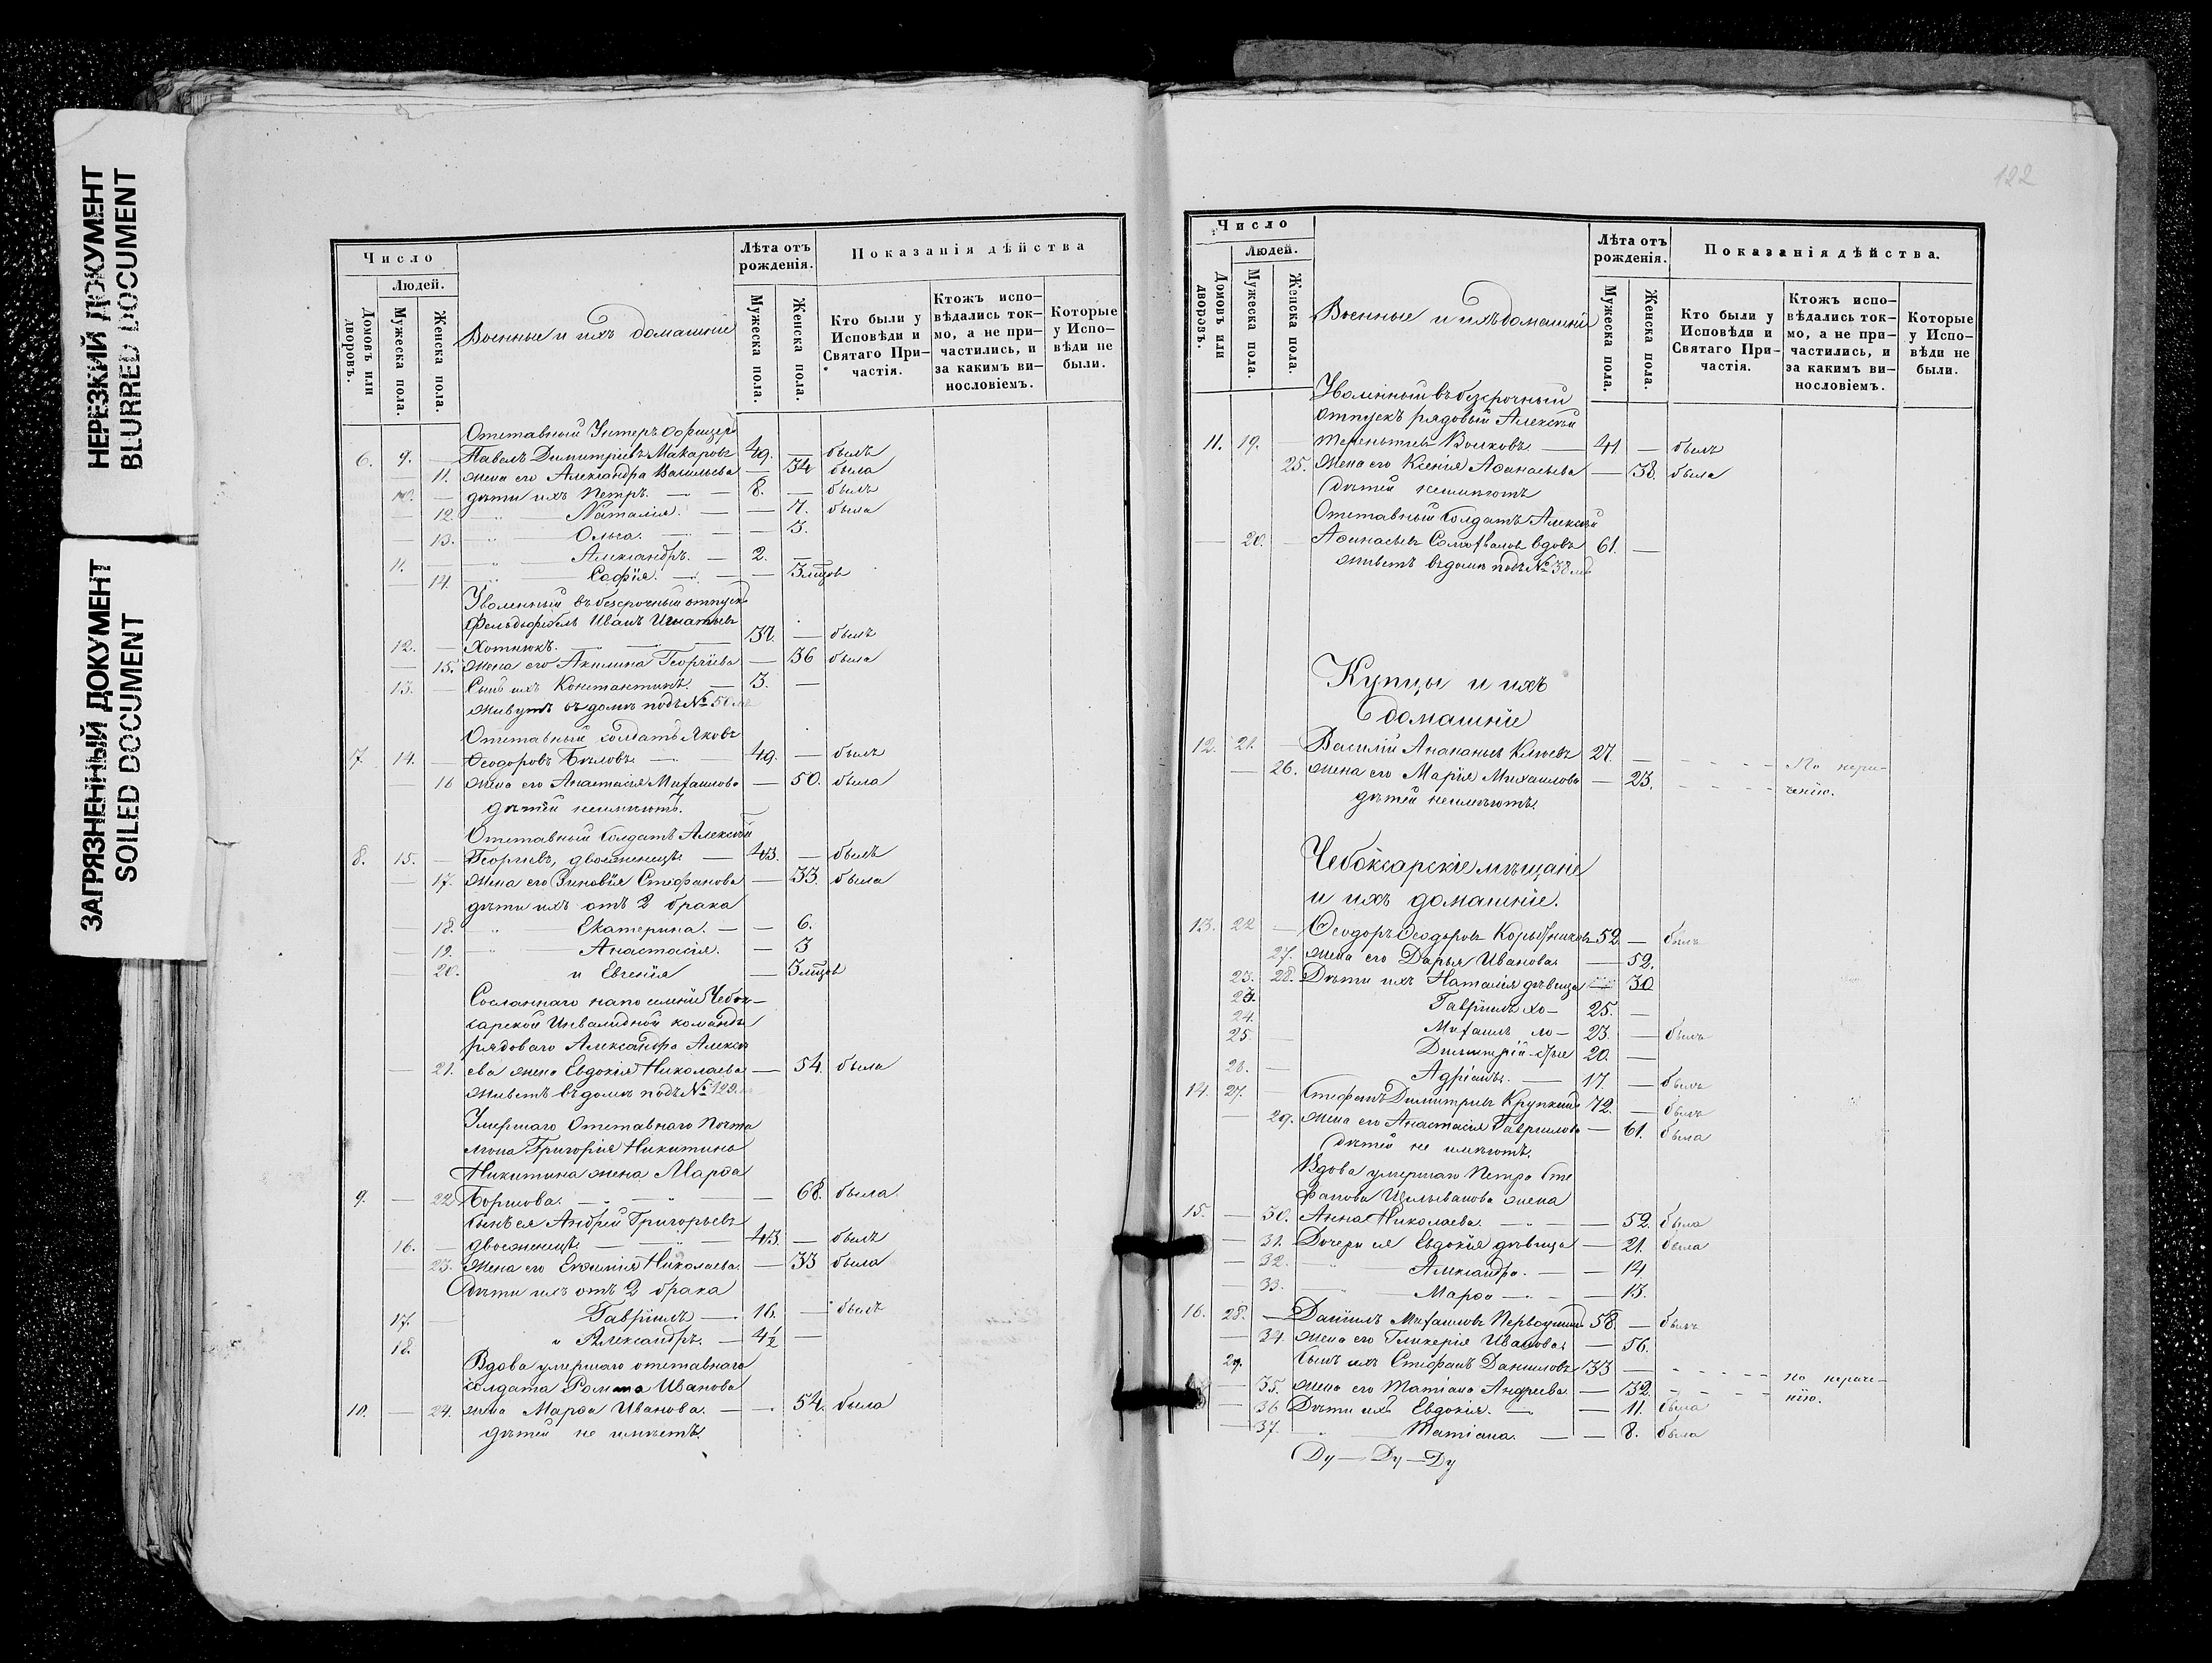 НЕРЕЗКИЙ ДОКУМЕНТ
BLURRED DOCUMENT
ЗАГРЯЗНЕННЫЙ ДОКУМЕНТ
SOILED DOCUMENT
Число
Людей.
Домовъ или дворовъ.
Мужеска пола.
Женска пола.
Военные и ихъ домашніе
Лѣта отъ рожденія.
Мужеска пола.
Женска пола.
Показанія дѣйства
Кто были у Исповѣди и Святаго При-частія.
Ктожъ испо-вѣдались ток-мо, а не при-частились, и за какимъ ви-нословіемъ.
Которые у Испо-вѣди не были.
Отставный Унтеръ Офицеръ
6. 9. — Павелъ Димитріевъ Макаровъ 49. — былъ
— 11. жена его Александра Васильева — 34 была
10. — дѣти ихъ Петръ. — 8. — былъ
— 12. „ Наталія. — — 7. была
— 13. „ Ольга. — — 3.
11. „ Александръ. — 2. —
— 14. „ Софія. — — 3 мѣсцов
Уволенный въ безсрочный отпускъ
Фельдфебель Иванъ Игнатьевъ
12. — Хотнюкъ. — 37. — былъ
— 15. жена его Акилина Георгіева — 36 была
13. — Сынъ ихъ Константинъ. — 3. —
живутъ въ домѣ подъ № 50
Отставный солдатъ Яковъ
7. 14. — Ѳеодоровъ Бѣловъ. — 49. — былъ
— 16 жена его Анастасія Михаилова — 50. была
дѣтей неимѣютъ.
Отставный солдатъ Алексѣй
8. 15. — Георгіевъ, двоеженецъ. — 43. — былъ
— 17. жена его Зиновія Стефанова — 33. была
дѣти ихъ отъ 2 брака
— 18. „ Екатерина. — — 6.
— 19. „ Анастасія. — 3
— 20. и Евгенія — 3 мѣсцов
Сосланнаго на поселеніе Чебок-
сарской Инвалидной команды
рядоваго Александра Алексѣ
— 21. ева жена Евдокія Николаева — 54. была
живетъ въ домѣ подъ № 123.
Умершаго Отставнаго Почта
ліона Григорія Никитина
Никитина жена Марѳа
9. — 22 Борисова. — „ — „ — 68. была
сынъ ея Андрей Григорьевъ
16. — двоеженецъ. — „ — 43. — былъ
— 23. жена его Евѳимія Николаева. — 33 была
Дѣти ихъ отъ 2 брака
17. — Гавріилъ — 16. — былъ
18. и Александръ. — 4½ —
Вдова умершаго отставнаго
солдата Романа Иванова
10. — 24. жена Марѳа Иванова. — — 54. была
дѣтей не имѣетъ.
122
Число
Людей.
Домовъ или дворовъ.
Мужеска пола.
Женска пола.
Военные и ихъ домашніе
Лѣта отъ рожденія.
Мужеска пола.
Женска пола.
Показанія дѣйства.
Кто были у Исповѣди и Святаго При-частія.
Ктожъ испо-вѣдались ток-мо, а не при-частились, и за какимъ ви-нословіемъ.
Которые у Испо-вѣди не были.
Уволенный въ безсрочный
отпускъ рядовый Алексѣй
11. 19. — Терентьевъ Волковъ. — 41 — былъ
25. жена его Ксенія Аѳанасьева — 38. была
дѣтей неимѣютъ
Отставный солдатъ Алексѣй
— 20. — Аѳанасьевъ вдовъ 61. —
живетъ въ домѣ подъ № 38
Купцы и ихъ
домашніе
12. 21. — Василій Ананьинъ Клюевъ 27. — По нера-
— 26. жена его Марія Михаилова — 23. денію.
дѣтей неимѣютъ.
Чебоксарскіе мѣщане
и ихъ домашніе.
13. 22 — Ѳеодоръ Ѳеодоровъ 52. — былъ
27. жена его Дарья Иванова — 52.
23. 28. Дѣти ихъ Наталія дѣвица — 30
23. Гавріилъ хо- 25. —
24. Михаилъ ло- 23. — былъ
25. — Димитрій -стые 20. —
26. — Адріанъ. — 17. — былъ
14. 27. — Стефанъ Димитріевъ Крупкинъ 72. — былъ
— 29. жена его Анастасія Гавриилова — 61. была
дѣтей не имѣютъ.
Вдова умершаго Петра Сте
фанова жена
15. — 30. Анна Николаева. — — 52. была
— 31. Дочери ея Евдокія дѣвица — 21. была
— 32. „ Александра. — — 14
— 33. „ Марѳа — — 13.
16. 28. — Даніилъ Михаиловъ 58. — былъ
— 34. жена его Гликерія Иванова — 56.
29. сынъ ихъ Стефанъ Даниловъ 33 — по нераде-
— 35. жена его Татіана Андреева. — 32. нію.
— 36 Дѣти ихъ Евдокія. — — 11. была
— 37. „ Татіана. — — 8. была
Ду — Ду — Ду